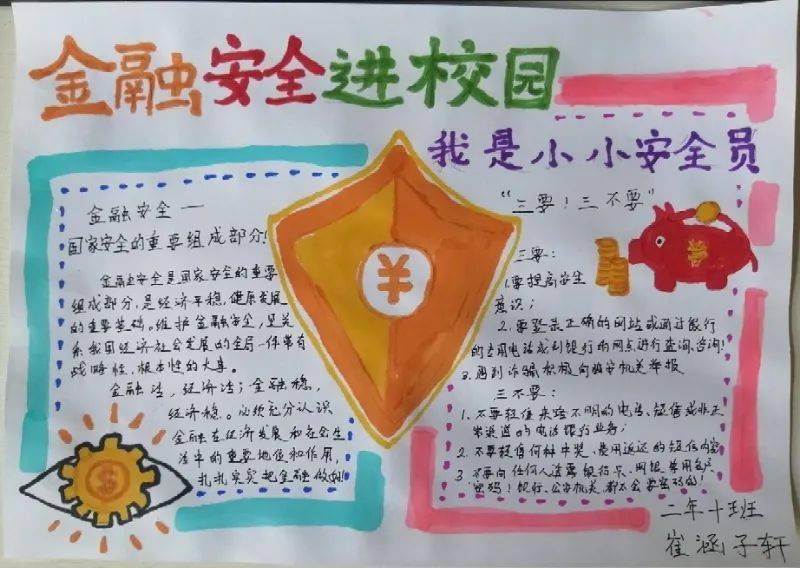 金融安全进校园
我是小小安全员
金融安全—
国家安全的重要组成部分!
金融安全是国家安全的重要
组成部分,是经济平稳,健康发展
的重要基础。维护金融安全,是关
系我国经济社会发展的全局一件带有
战略性,根本性的大事。
金融活,经济活;金融稳,
经济稳。必须充分认识
金融在经济发展和社会生
活中的重要地位和作用,
扎扎实实把金融做好!
¥
$
"三要!三不要"
三要:
1.要提高安全
意识;
2.要登录正确的网站或通过银行
的专用电话或到银行的网点进行查询、咨询!
3.遇到诈骗积极向公安机关举报
三不要:
1.不要轻信来路不明的电话、短信或非正
常渠道的电话银行业务;
2.不要轻信何种中奖、费用返还的短信内容
3.不要向任何人透露银行卡、网银、常用各户
密码!银行、公安机关,都不会要密码的!
二年十班
崔涵子轩